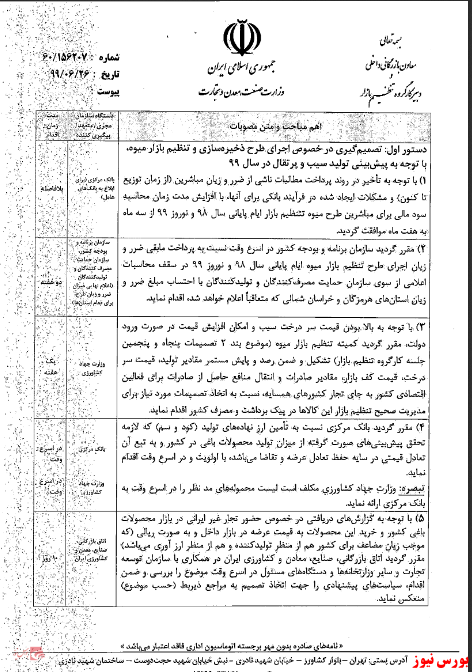 بسمه تعالی
معاون بازرگانی داخلی
و
دبیر کارگروه تنظیم بازار
جمهوری اسلامی ایران
وزارت صنعت، معدن و تجارت
شماره : ۶۰/۱۵۶۲۰۷
تاریخ : ۹۹/۰۶/۲۶
پیوست
اهم مباحث و متن مصوبات
دستور اول: تصمیم‌گیری در خصوص اجرای طرح ذخیره‌سازی و تنظیم بازار میوه،
با توجه به پیش‌بینی تولید سیب و پرتقال در سال ۹۹
۱) با توجه به تأخیر در روند پرداخت مطالبات ناشی از ضرر و زیان مباشرین (از زمان توزیع
تا کنون) و مشکلات ایجاد شده در فرآیند بانکی برای آنها، با افزایش مدت زمان محاسبه
سود مالی برای مباشرین طرح میوه تنظیم بازار ایام پایانی سال ۹۸ و نوروز ۹۹ از سه ماه
به هفت ماه موافقت گردید.
بانک مرکزی (برای
ابلاغ به بانک‌های
عامل)
بلافاصله
۲) مقرر گردید سازمان برنامه و بودجه کشور در اسرع وقت نسبت به پرداخت مابقی ضرر و
زیان اجرای طرح تنظیم بازار میوه ایام پایانی سال ۹۸ و نوروز ۹۹ در سقف محاسبات
اعلامی از سوی سازمان حمایت مصرف‌کنندگان و تولیدکنندگان با احتساب مبلغ ضرر و
زیان استان‌های هرمزگان و خراسان شمالی که متعاقباً اعلام خواهد شد، اقدام نماید.
سازمان برنامه و
بودجه کشور،
سازمان حمایت
مصرف‌کنندگان و
تولیدکنندگان
دو هفته
۳) با توجه به بالا بودن قیمت سر درخت سیب و امکان افزایش قیمت در صورت ورود
دولت، مقرر گردید کمیته تنظیم بازار میوه (موضوع بند ۲ تصمیمات پنجاه و پنجمین
جلسه کارگروه تنظیم بازار) تشکیل و ضمن رصد و پایش مستمر مقادیر تولید، قیمت سر
درخت، قیمت کف بازار، مقادیر صادرات و انتقال منافع حاصل از صادرات برای فعالین
اقتصادی کشور به جای تجار کشورهای همسایه، نسبت به اتخاذ تصمیمات مورد نیاز برای
مدیریت صحیح تنظیم بازار این کالاها در پیک برداشت و مصرف کشور اقدام نماید.
وزارت جهاد
کشاورزی
یک
هفته
۴) مقرر گردید بانک مرکزی نسبت به تأمین ارز نهاده‌های تولید (کود و سم) که لازمه
تحقق پیش‌بینی‌های صورت گرفته از میزان تولید محصولات باغی در کشور و به تبع آن
تعادل قیمتی در سایه حفظ تعادل عرضه و تقاضا می‌باشد؛ با اولویت و در اسرع وقت اقدام
نماید.
بانک مرکزی
در اسرع
وقت
تبصره: وزارت جهاد کشاورزی مکلف است لیست محموله‌های مد نظر را در اسرع وقت به
بانک مرکزی ارائه نماید.
وزارت جهاد
کشاورزی
در اسرع
وقت
۵) با توجه به گزارش‌های دریافتی در خصوص حضور تجار غیر ایرانی در بازار محصولات
باغی کشور و خرید این محصولات به قیمت عرضه در بازار داخل و به صورت ریالی (که
موجب زیان مضاعف برای کشور هم از منظر تولیدکننده و هم از منظر ارز آوری می‌باشد)
مقرر گردید اتاق بازرگانی، صنایع، معادن و کشاورزی ایران در همکاری با سازمان توسعه
تجارت و سایر وزارتخانه‌ها و دستگاه‌های مسئول در اسرع وقت موضوع را بررسی و ضمن
اقدام، سیاست‌های پیشنهادی را جهت اتخاذ تصمیم به مراجع ذیربط (حسب موضوع)
منعکس نماید.
اتاق بازرگانی،
صنایع، معادن و
کشاورزی ایران
روز
« نامه‌های صادره بدون مهر برجسته اتوماسیون اداری فاقد اعتبار می‌باشد »
آدرس پستی: تهران - بلوار کشاورز - خیابان شهید نادری - نبش خیابان شهید حجت‌دوست - ساختمان شهید نادری
بورس نیوز